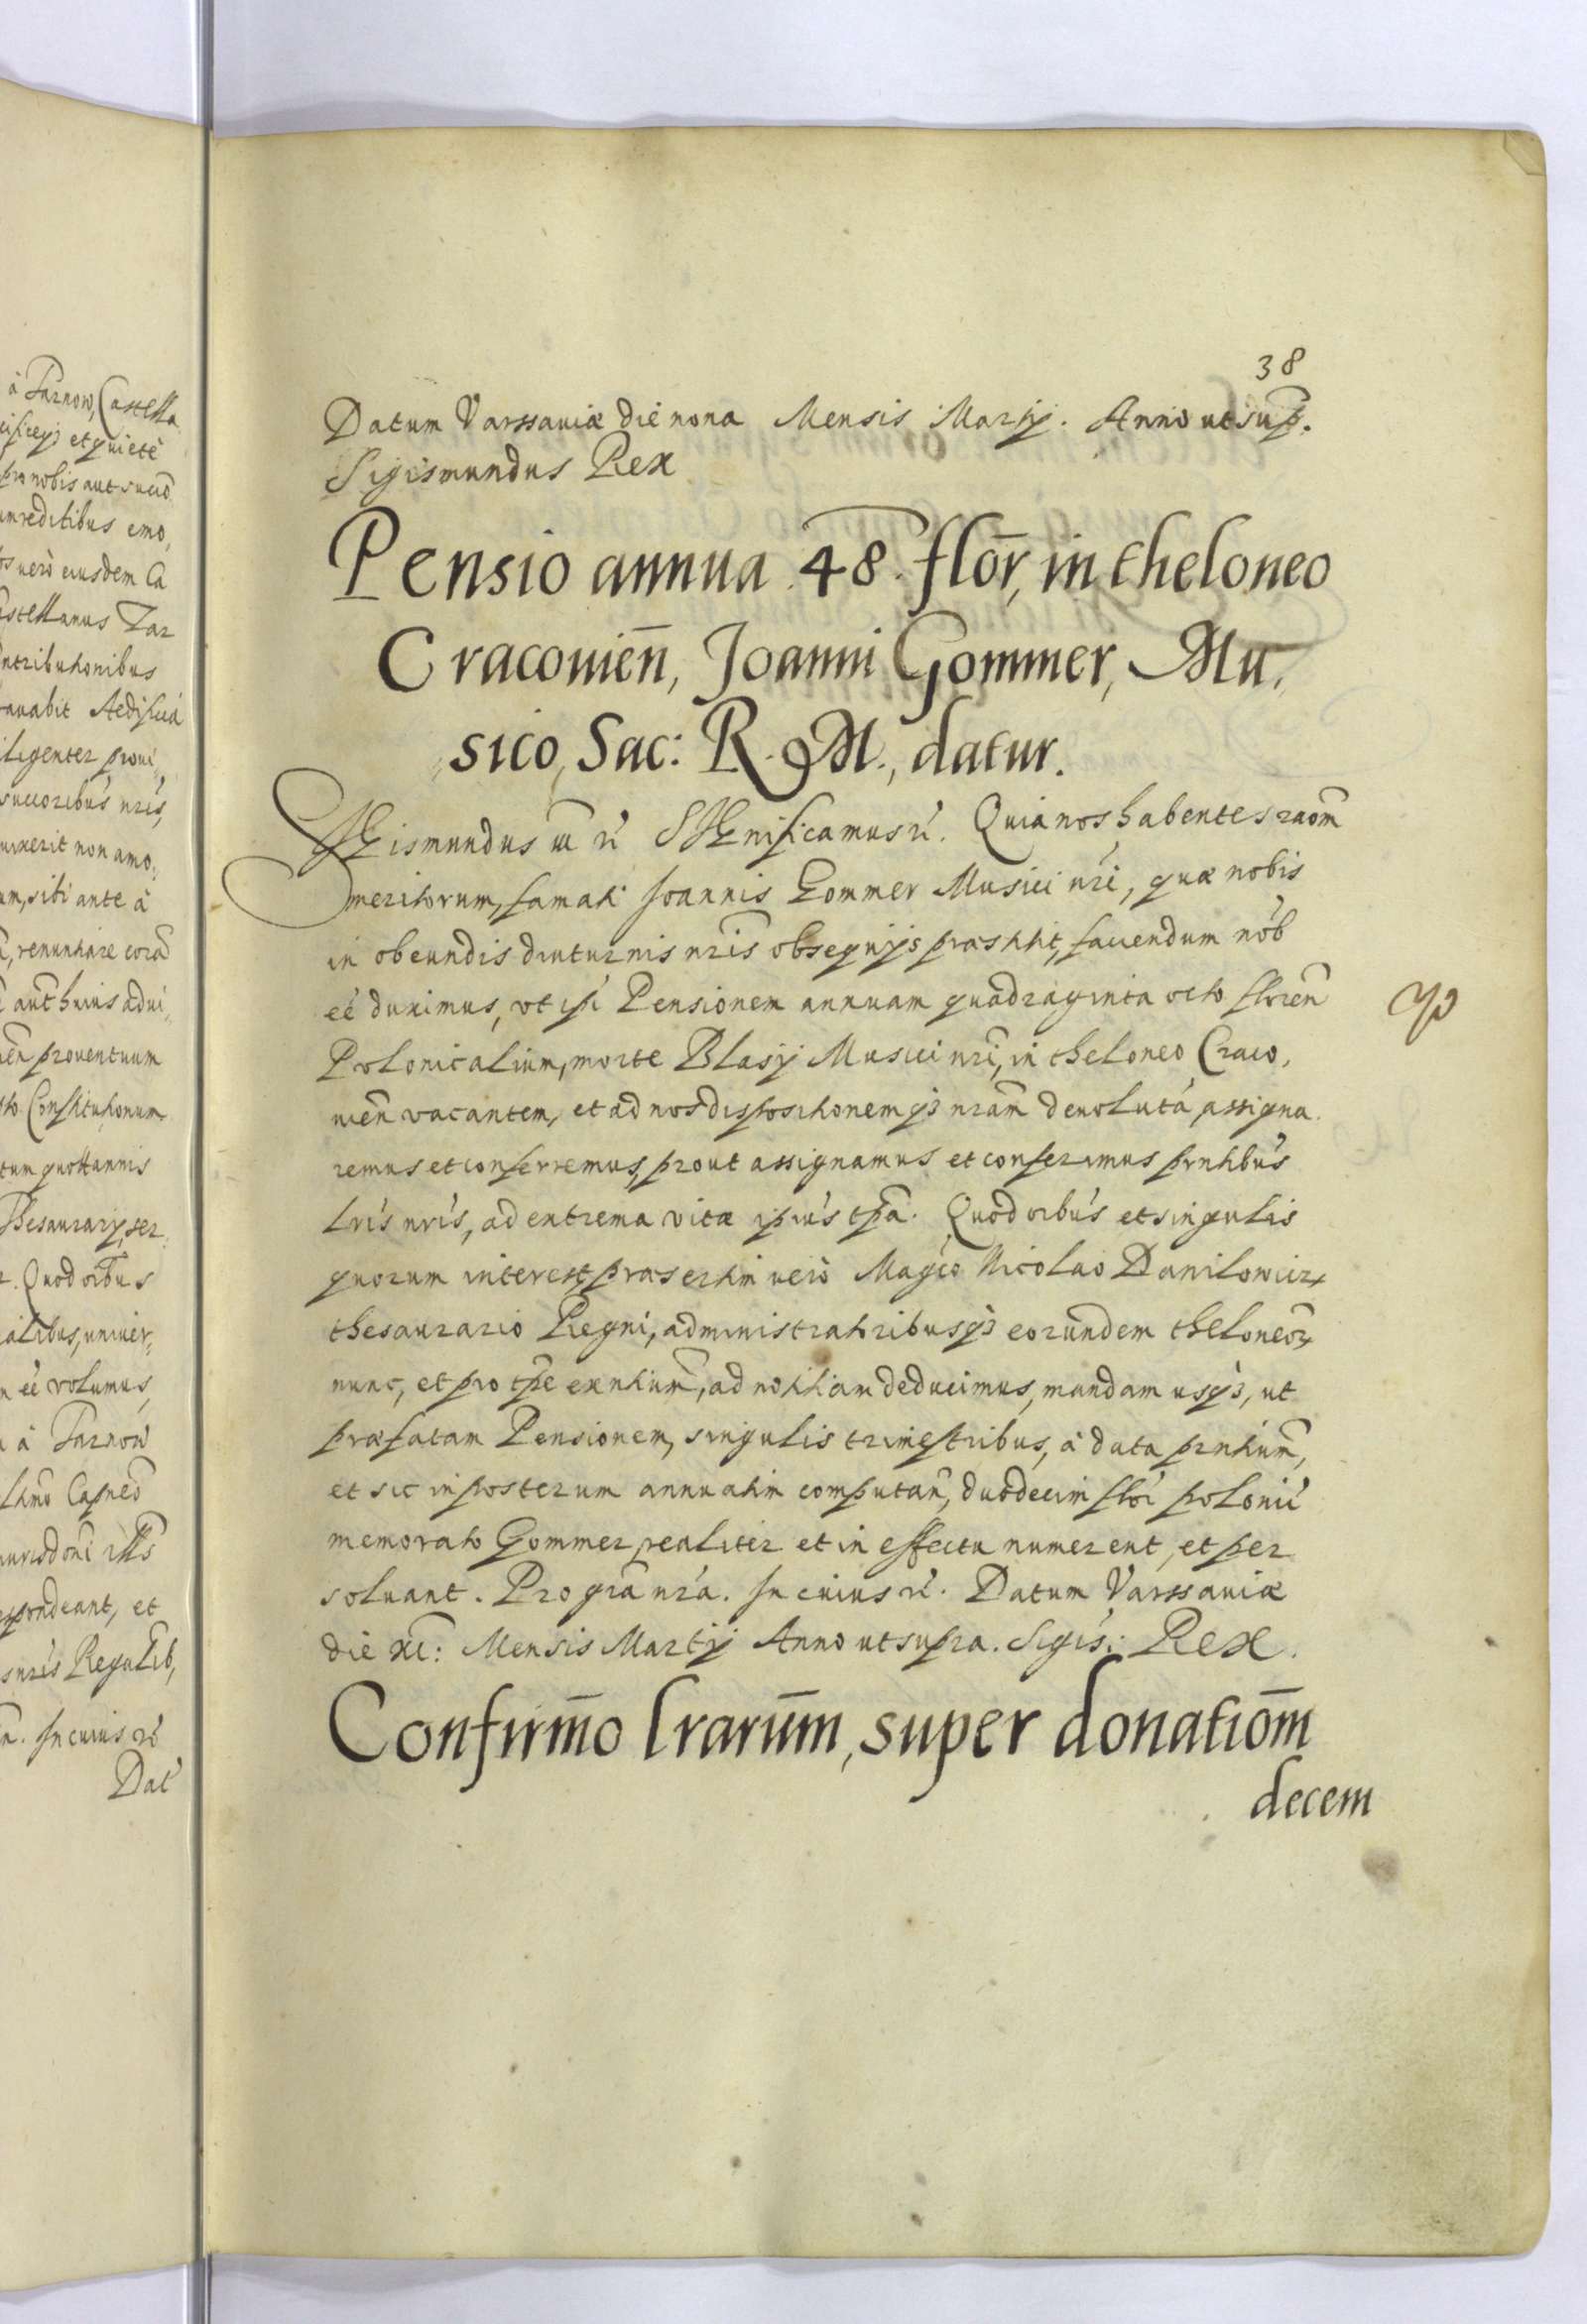 à Tarnow, Castella
et quiete
pro nobis aut succō
reditibus emo,
vero eiusdem Ca
stellanus Tar
ntributionibus
avabit Aedificia
iligenter proui,
succoribus nris,
uixerit non amo,
um, sibi ante à
renuntiare corā
aut huius adui
proventuum
Constitutionum
tum quottannis
Thesaurarij, ser
Quod oibus
alibus, univer,
eē volumus,
à Tarnow
Capneō
spondeant, et
nris Regulib,
In cuius rī
Dat
38
Datum Varssaviæ die nona Mensis Martij. Anno ut sup.
Sigismundus Rex
Pensio annua 48. flōr, in theloneo
Cracouieñ, Joanni Gommer, Mu,
sico, Sac: R. M., datur.
Sigismundus III rī Significamus rī. Quia nos habentes raōm
meritorum, famati Joannis Gommer Musici nrī, quæ nobis
in obeundis diuturnis nris obsequijs præstitit, fauendum nōb
eē duximus, vt ipsi Pensionem annuam quadraginta octo floreñ
Polonicalium, morte Blasij Musici nrī, in theloneo Craco,
uieñ vacantem, et ad nos dispositionemqȝ nram deuolutā, assigna
remus et conferremus, prout assignamus et conferimus pñtibus
lrīs nrīs, ad extrema vitæ ipius tpā. Quod oibus et singulis
quorum interest, præsertim vero Magco Nicolao Danilowicz
thesaurario Regni, administratoribusqȝ eorundem theloneor
nunc, et pro tpe exntium, ad notitiam deducimus, mandamusqȝ, ut
præfatam Pensionem, singulis trimestribus, à data pñtium,
et sic in posterum annuatim computañ, duodecim flor polonic
memorato Gommer, realiter et in effectu numerent, et per
soluant. Pro grā nrā. In cuius rī. Datum Varssaviæ
die XI: Mensis Martij Anno ut supra. Sigis: Rex.
Confirmō lrarūm, super donatiōm
decem